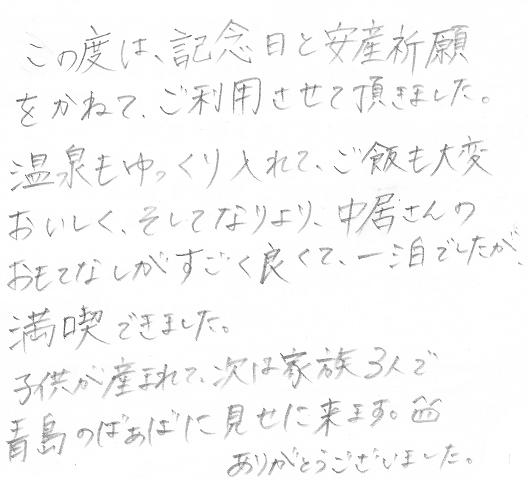 この度は、記念日と安産祈願
をかねて、ご利用させて頂きました。
温泉もゆっくり入れて、ご飯も大変
おいしく、そしてなりより、中居さんの
おもてなしがすごく良くて、一泊でしたが、
満喫できました。
子供が産まれて、次は家族3人で
青島のばぁばに見せに来ます。
ありがとうございました。